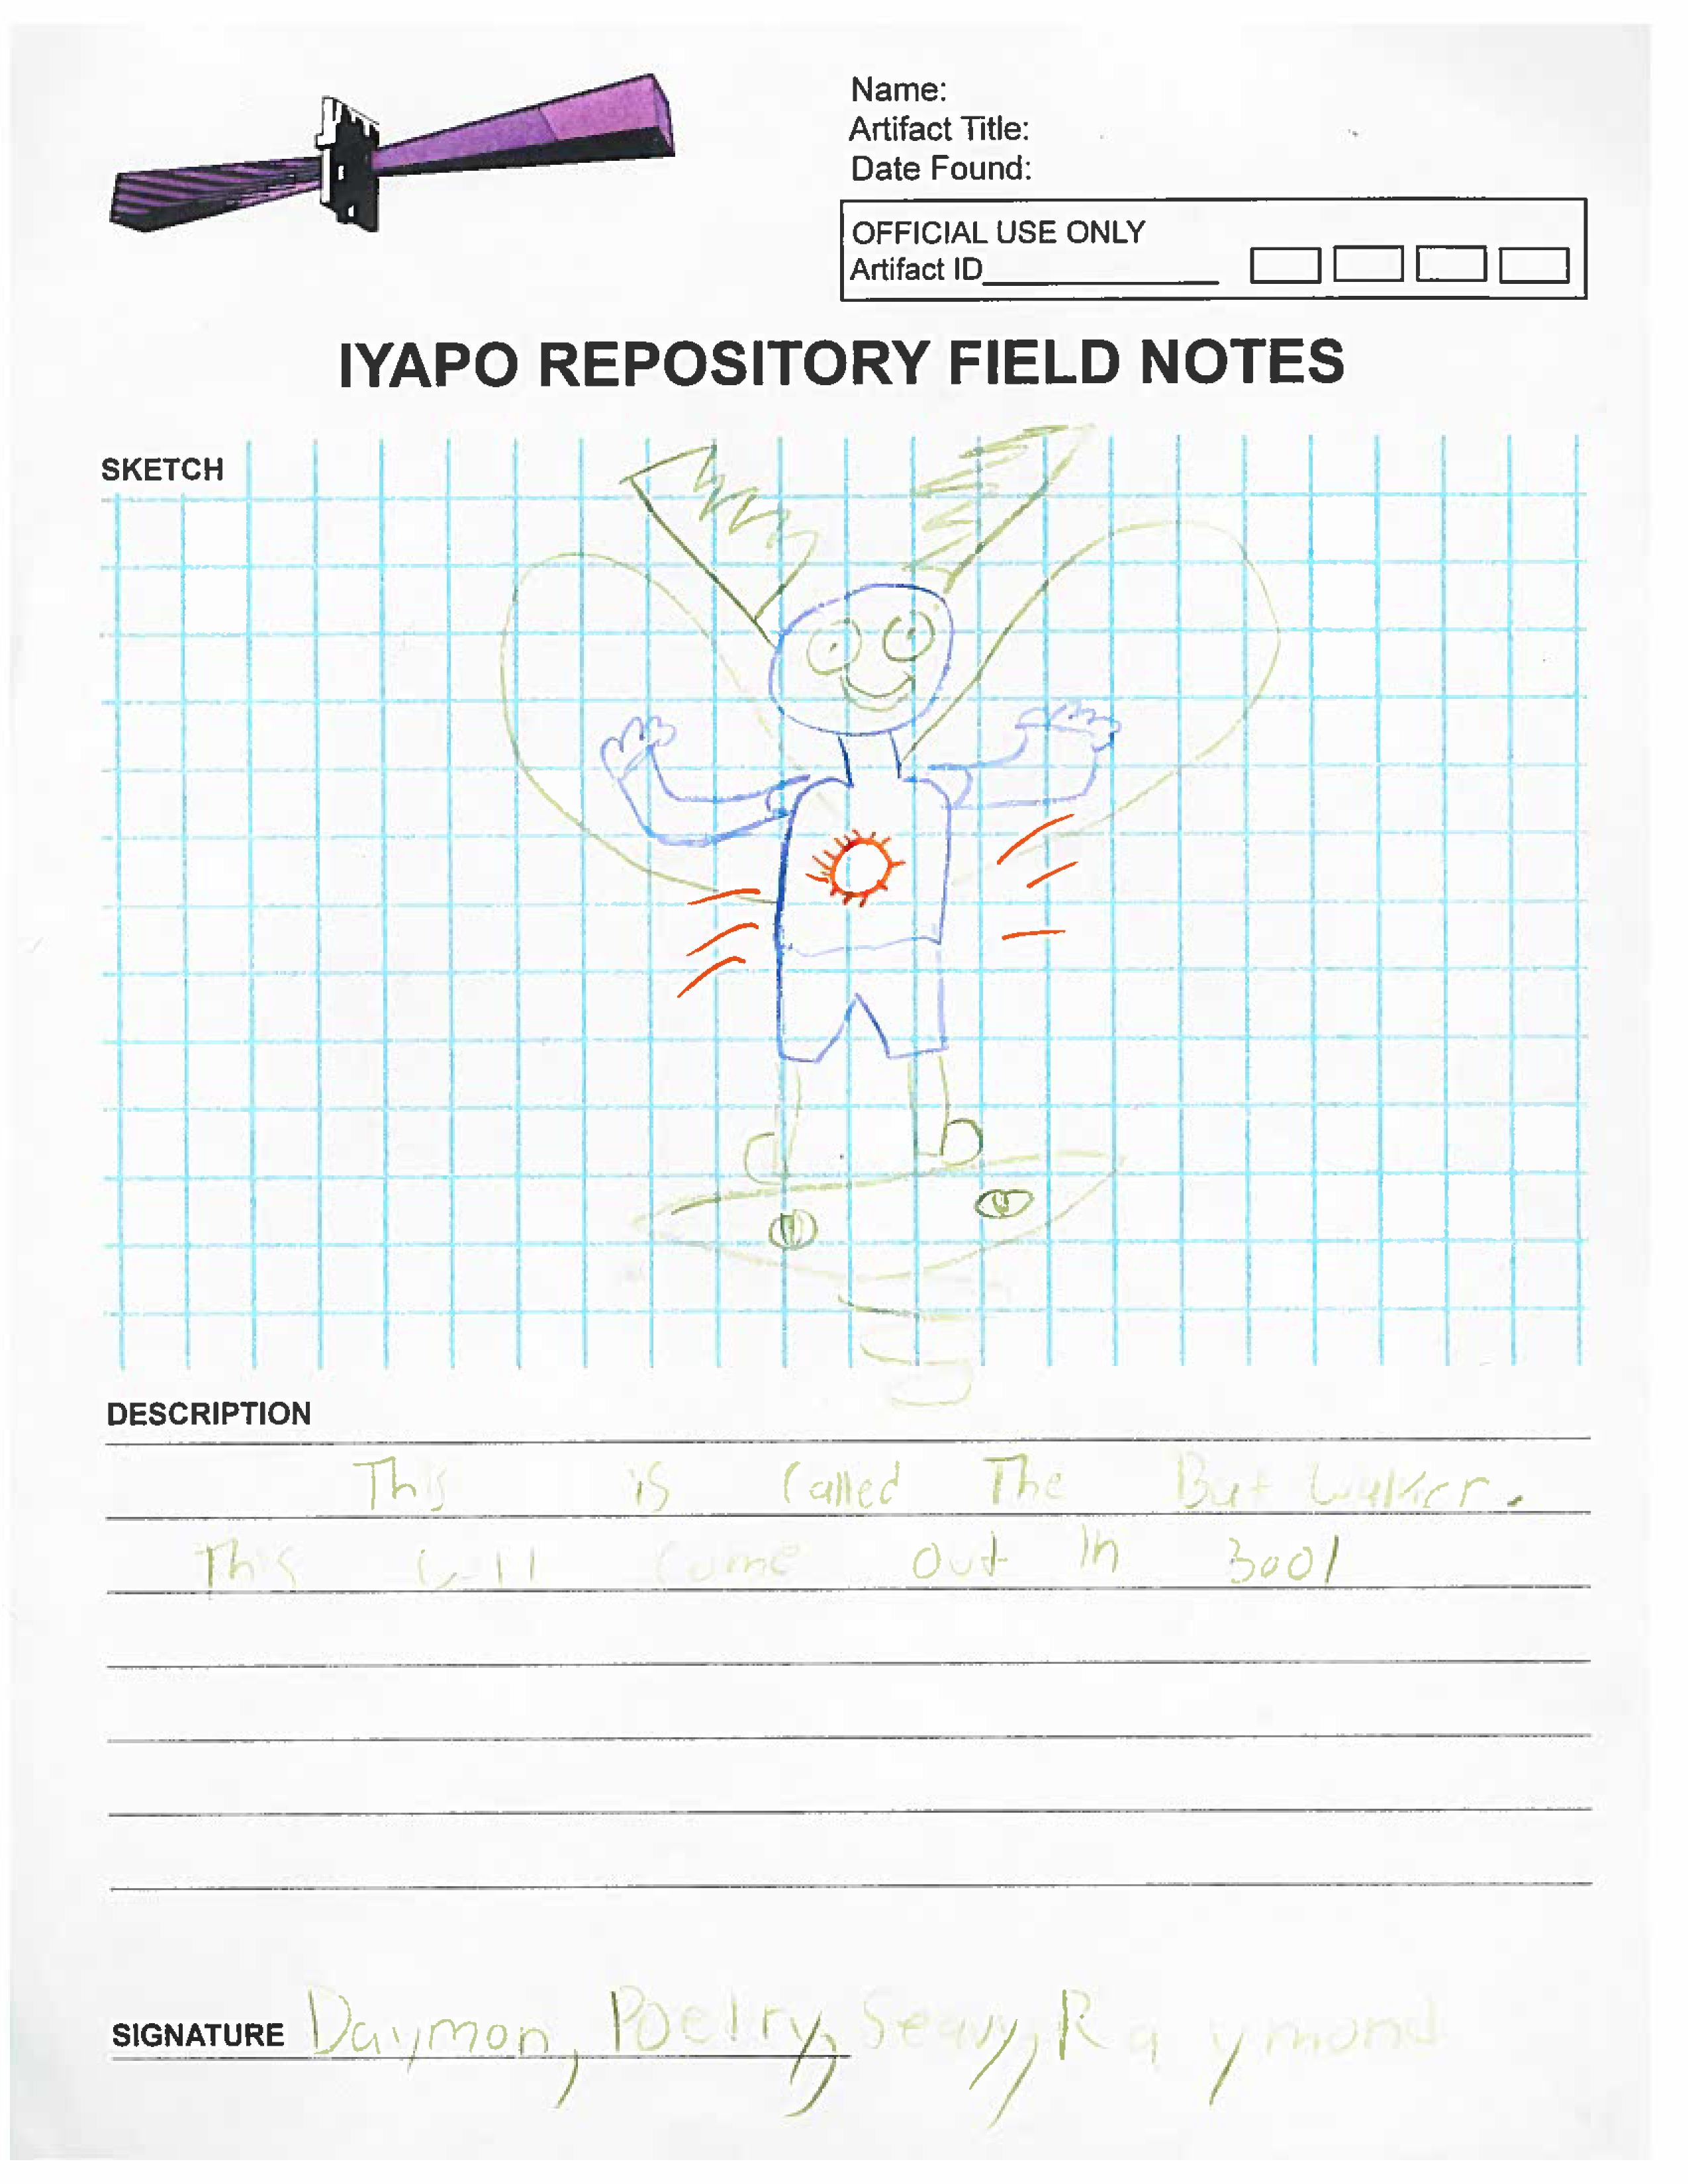 Name:
Artifact Title:
Date Found:
OFFICIAL USE ONLY
Artifact ID
IYAPO REPOSITORY FIELD NOTES
SKETCH
DESCRIPTION
This is Called The Bat Walker.
This will Come Out In 3001
SIGNATURE Daymon, Poetry, Seavy, Raymond